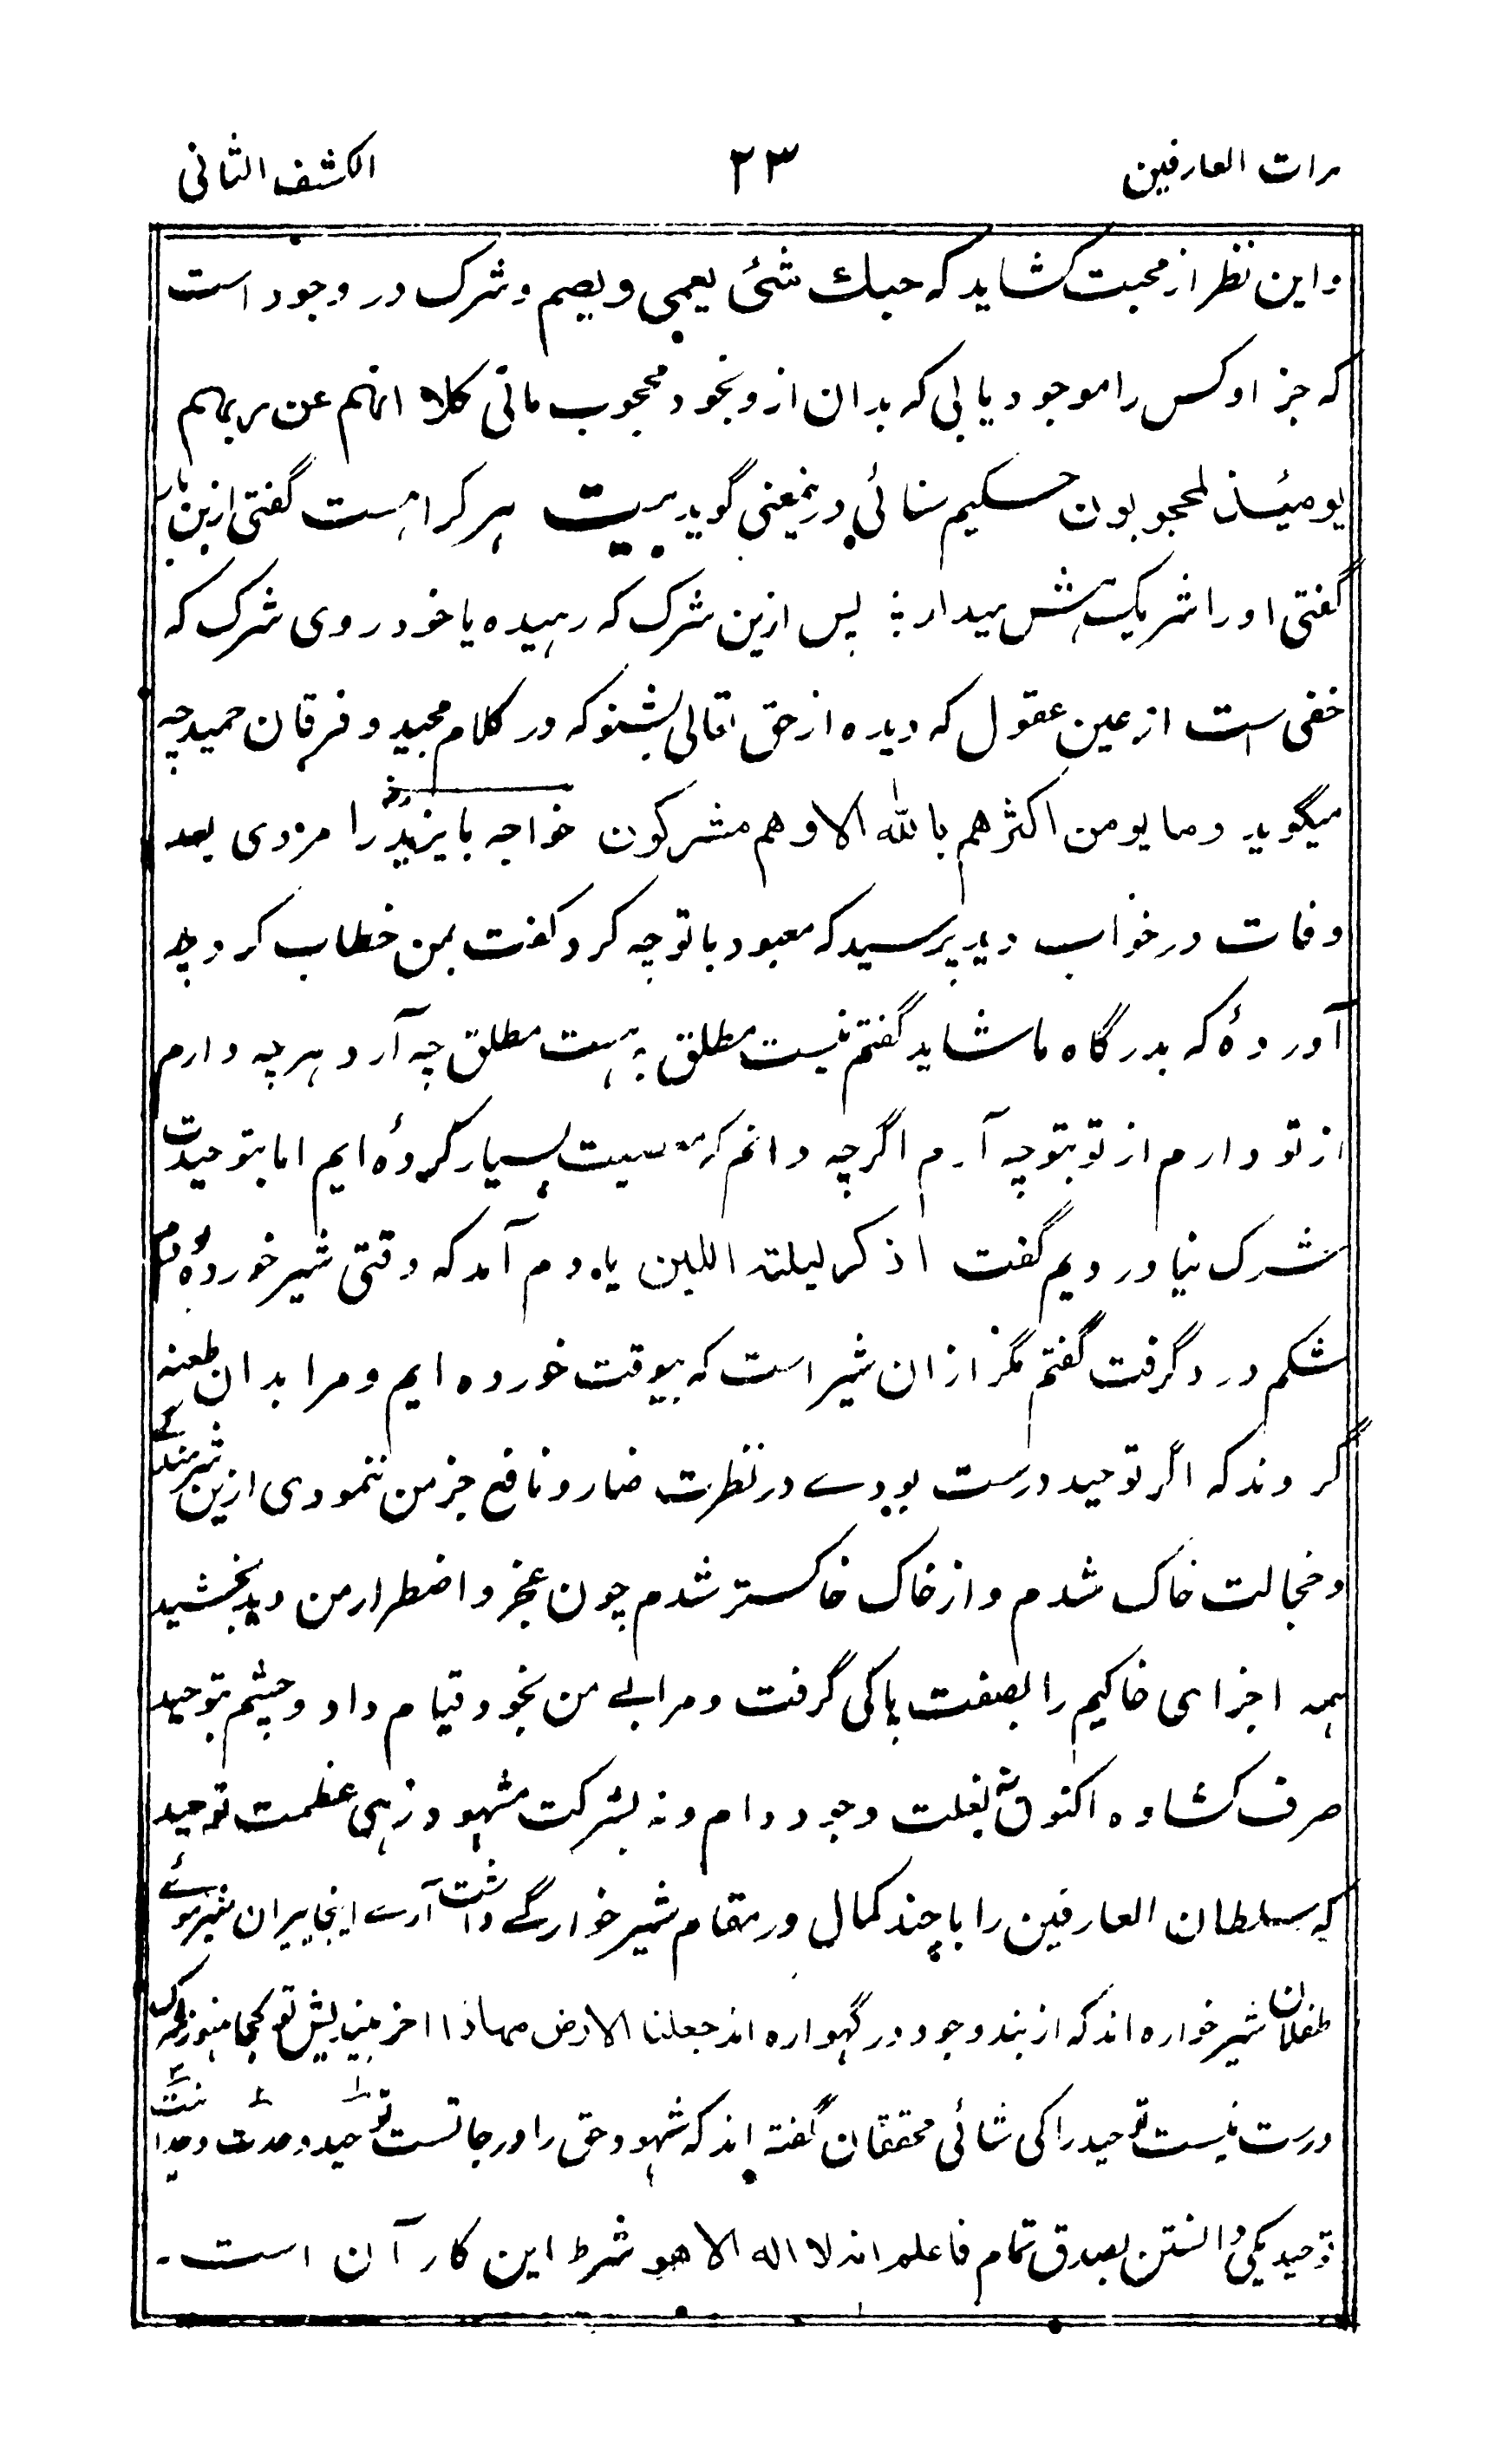 مرات العارفین ۲۳ الکشف الثانی
و این نظر از محبت کشاید که حبك شئ یعمی و یصم و شرک در وجود است
که جز او کس را موجود یابی که بدان از و بخود محجوب مانی کلا انهم عن ربهم
یومئذ لمحجوبون حکیم سنائی درینمعنی گوید بیت هر کرا هست گفتی ازین باب
گفتی او را شریک هش میدار ؛ پس ازین شرک که رهیده یا خود روی شرک که
خفی است از عین عقول که دیده از حق تعالی بشنو که در کلام مجید و فرقان حمید چه
میگوید وما یومن اکثرهم بالله الا وهم مشرکون خواجه بایزید رح را مردی بعد
وفات در خواب دید پرسید که معبود با تو چه کرد گفت بمن خطاب کرد چه
آوردهٔ که بدرگاه ما شاید گفتم نیست مطلق به هست مطلق چه آرد هر چه دارم
از تو دارم از تو بتو چه آرم اگرچه دانم که معصیت بسیار کردهٔ ایم اما بتوحیدت
شرک نیاوردیم گفت اذکر لیلتہ اللبن یادم آمد که وقتی شیر خوردهٔ بودم
شکم درد گرفت گفتم مگر ازان شیر است که بیوقت خورده ایم و مرا بدان طعنه
کردند که اگر توحید درست بودے در نظرت ضار و نافع جز من ننمودی ازین شرمندگے
و خجالت خاک شدم و از خاک خاکستر شدم چون عجز و اضطرار من دید بخشید
همه اجزای خاکیم را بصفت پاکی گرفت و مرا بے من بخود قیام داد و چشم بتوحید
صرف کشاده اکنون نه بغلت وجود دام و نه بشرکت مشهود زهی عظمت توحید
که سلطان العارفین را با چند کمال در مقام شیر خوارگے داشت آرے اینجا پیران شیر موئے
طفلان شیر خواره اند که از بند وجود در گهواره اند جعلنا الارض مهادا آخر بیندیش تو کجا هنوز
درست نیست توحید را کی شائی محققان گفته اند که شهود حق را درجاتست توحید وحدت
توحید یکی دانستن بصدق تمام فاعلم انه لا اله الا هو شرط این کار آن است۔